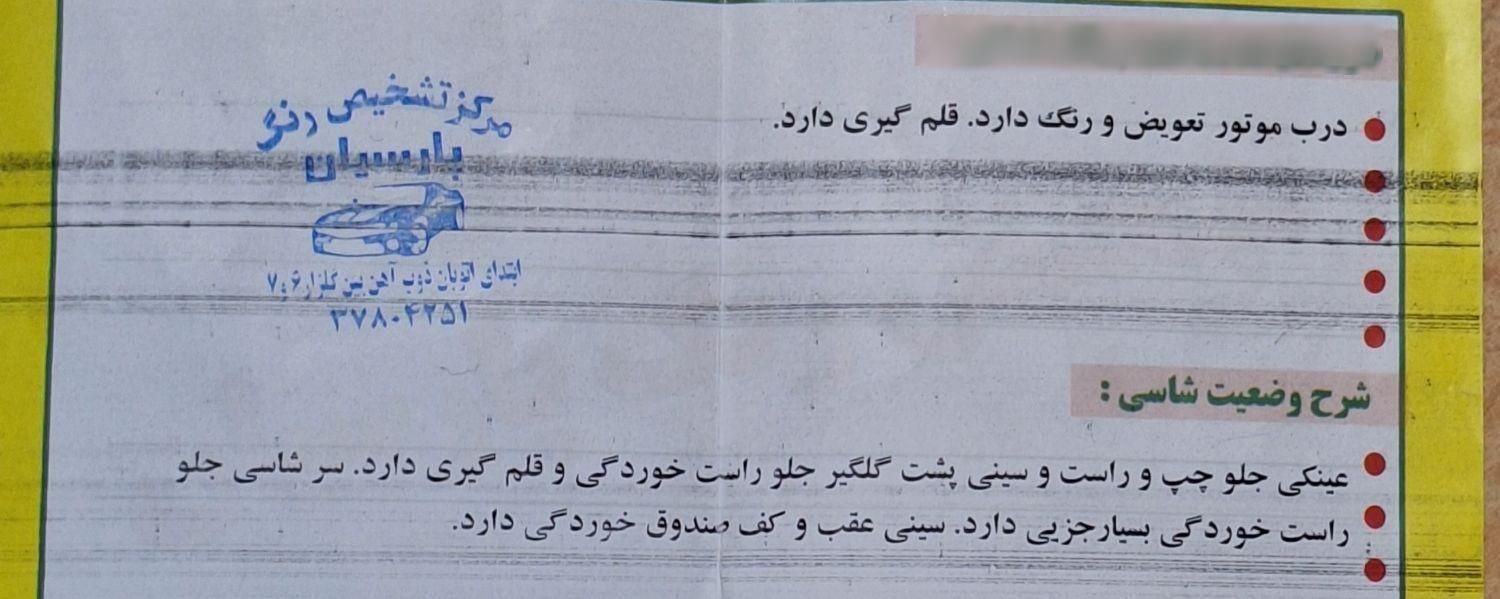 درب موتور تعویض و رنگ دارد. قلم گیری دارد.
مرکز تشخیص رنگ
پارسیان
ابتدای اتوبان ذوب آهن بین گلزار ۶ و ۷
۳۷۸۰۴۲۵۱
شرح وضعیت شاسی :
عینکی جلو چپ و راست و سینی پشت گلگیر جلو راست خوردگی و قلم گیری دارد. سر شاسی جلو
راست خوردگی بسیارجزیی دارد. سینی عقب و کف صندوق خوردگی دارد.